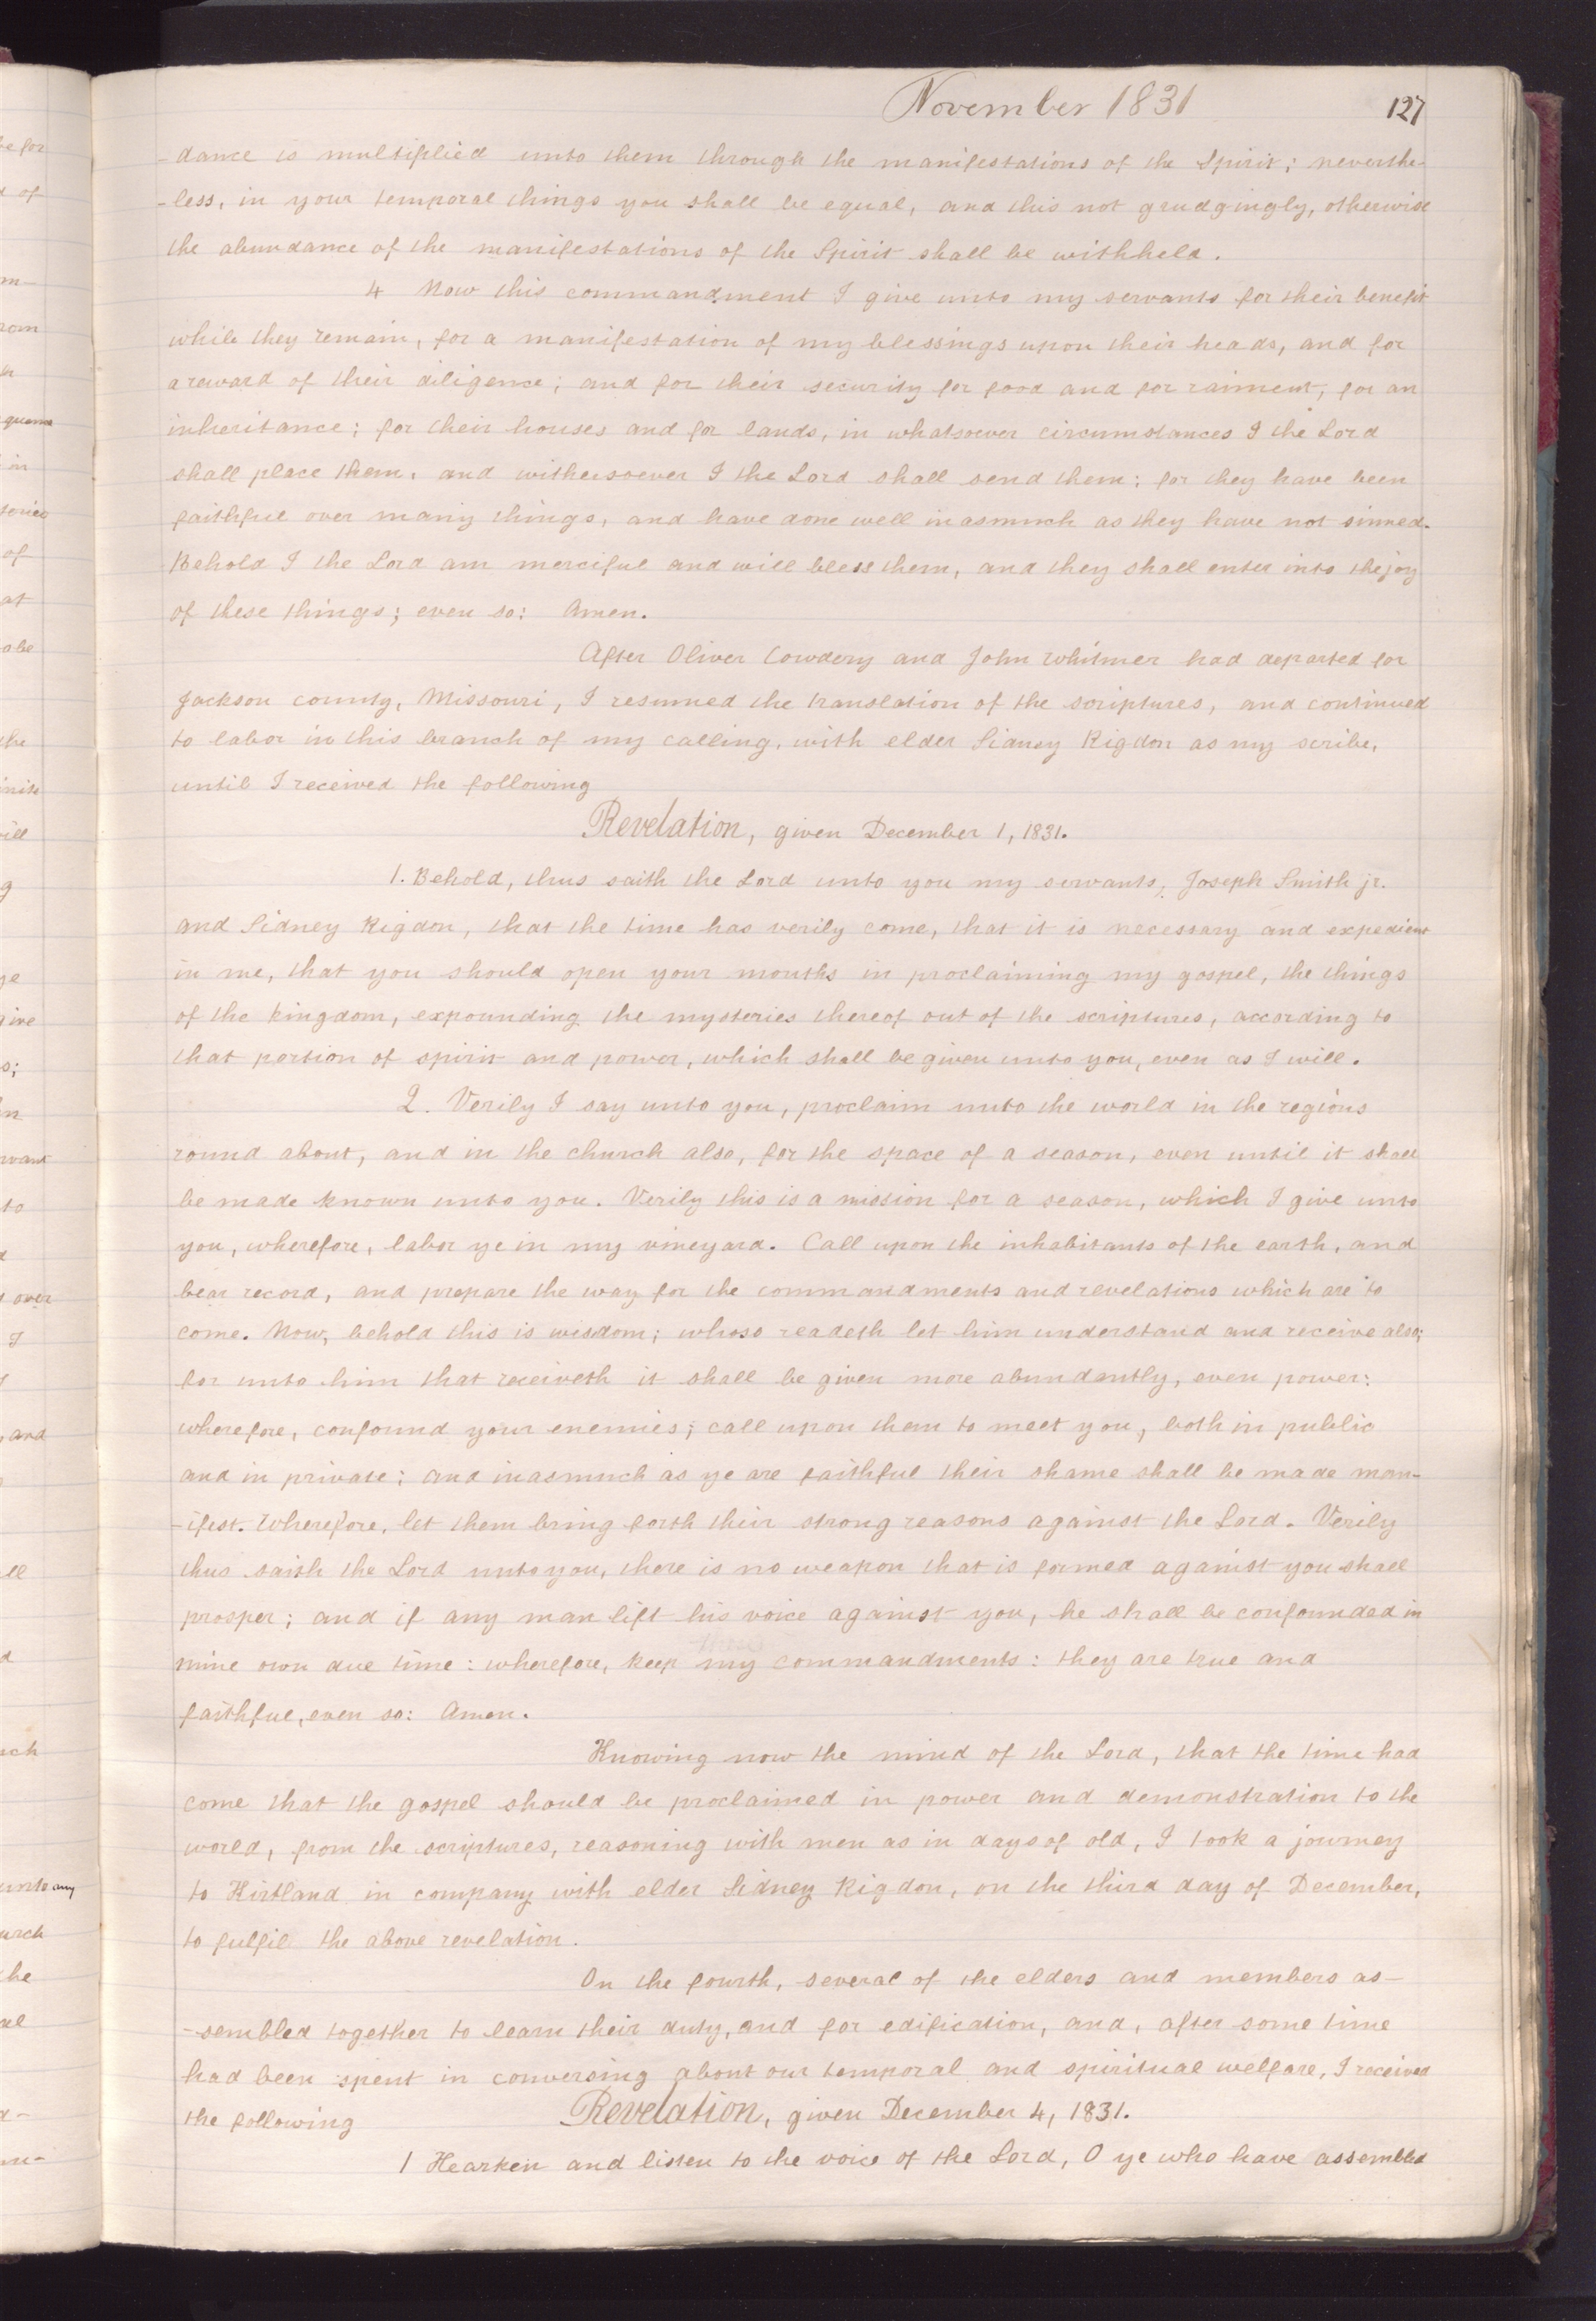 November 1831
127
-dance is multiplied unto them through the manifestations of the Spirit; neverthe-
-less, in your temporal things you shall be equal, and this not grudgingly, otherwise
the abundance of the manifestations of the Spirit shall be withheld.
4 Now this commandment I give unto my servants for their benefit
while they remain, for a manifestation of my blessings upon their heads, and for
a reward of their diligence; and for their security for food and for raiment, for an
inheritance; for their houses and for lands, in whatsoever circumstances I the Lord
shall place them, and withersoever I the Lord shall send them: for they have been
faithful over many things, and have done well inasmuch as they have not sinned.
Behold I the Lord am merciful and will bless them, and they shall enter into the joy
of these things; even so: Amen.
After Oliver Cowdery and John Whitmer had departed for
Jackson county, Missouri, I resumed the translation of the scriptures, and continued
to labor in this branch of my calling, with elder Sidney Rigdon as my scribe,
until I received the following
Revelation, given December 1, 1831.
1. Behold, thus saith the Lord unto you my servants, Joseph Smith jr.
and Sidney Rigdon, that the time has verily come, that it is necessary and expedient
in me, that you should open your mouths in proclaiming my gospel, the things
of the kingdom, expounding the mysteries thereof out of the scriptures, according to
that portion of spirit and power, which shall be given unto you, even as I will.
2. Verily I say unto you, proclaim unto the world in the regions
round about, and in the church also, for the space of a season, even until it shall
be made known unto you. Verily this is a mission for a season, which I give unto
you, wherefore, labor ye in my vineyard. Call upon the inhabitants of the earth, and
bear record, and prepare the way for the commandments and revelations which are to
come. Now, behold this is wisdom; whoso readeth let him understand and receive also;
for unto him that receiveth it shall be given more abundantly, even power:
wherefore, confound your enemies; call upon them to meet you, both in public
and in private; and inasmuch as ye are faithful their shame shall be made man-
-ifest. Wherefore, let them bring forth their strong reasons against the Lord. Verily
thus saith the Lord unto you, there is no weapon that is formed against you shall
prosper; and if any man lift his voice against you, he shall be confounded in
mine own due time: wherefore, keep my commandments: they are true and
faithful, even so: Amen.
Knowing now the mind of the Lord, that the time had
come that the gospel should be proclaimed in power and demonstration to the
world, from the scriptures, reasoning with men as in days of old, I took a journey
to Kirtland in company with elder Sidney Rigdon, on the third day of December,
to fulfil the above revelation.
On the fourth, several of the elders and members as-
-sembled together to learn their duty, and for edification, and, after some time
had been spent in conversing about our temporal and spiritual welfare, I received
the following Revelation, given December 4, 1831.
1 Hearken and listen to the voice of the Lord, O ye who have assembled